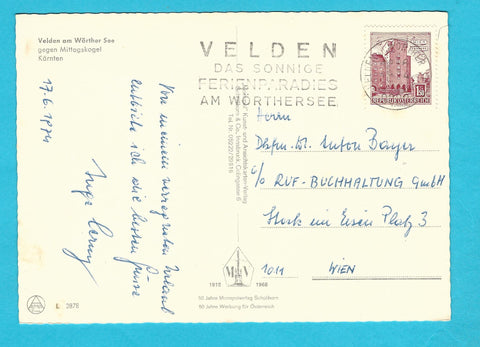 Velden am Wörther See
gegen Mittagskogel
Kärnten
17.6.1974
Von meinem verregneten Urlaub
entbiete ich die besten Grüsse
Inge
VELDEN
DAS SONNIGE
FERIENPARADIES
AM WÖRTHERSEE
REPUBLIK ÖSTERREICH
Kunst- und Ansichtskarten-Verlag
& Co., Innsbruck,
Tel. Nr. 05222/25916
1918 1968
50 Jahre Monopolverlag Schöllhorn
50 Jahre Werbung für Österreich
L 3878
Herrn
Dkfm. Anton Bayer
c/o RUF-BUCHHALTUNG GmbH
Stock im Eisen Platz 3
1011 WIEN